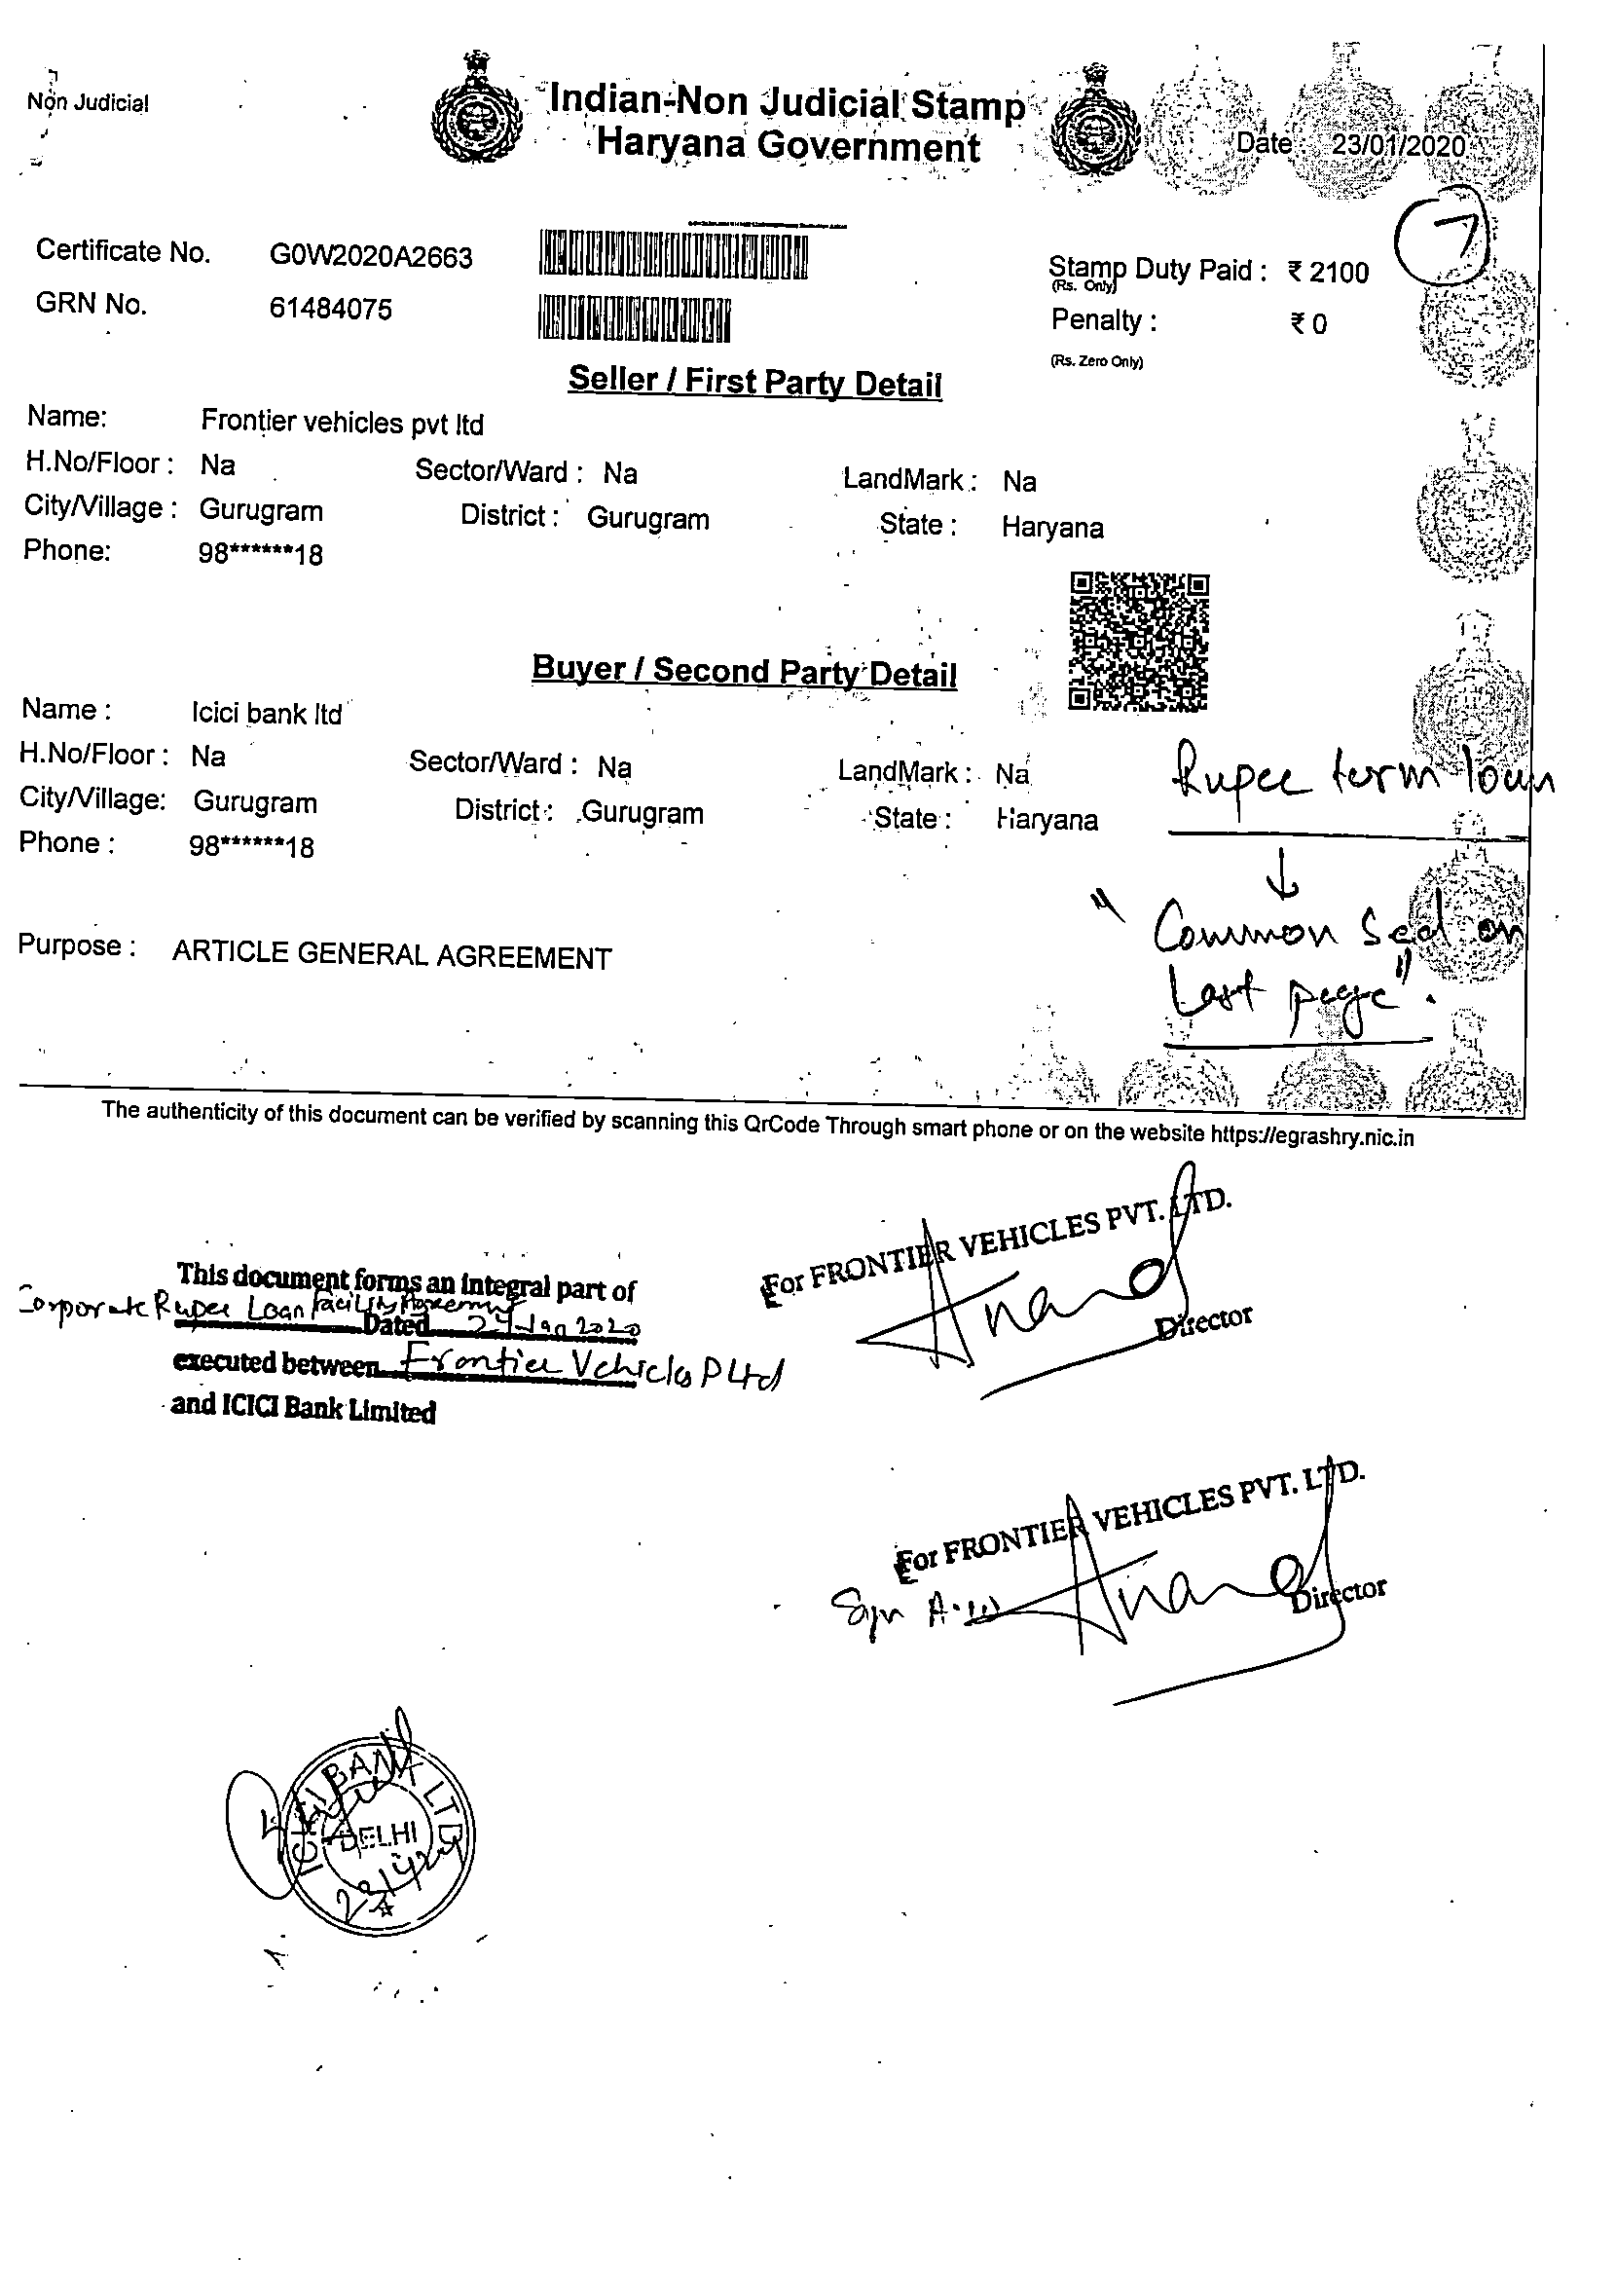 Non Judicial
Indian-Non Judicial Stamp
Haryana Government
Date : 23/01/2020
7
Certificate No. G0W2020A2663
Stamp Duty Paid : ₹ 2100
(Rs. Only)
GRN No. 61484075
Penalty : ₹ 0
(Rs. Zero Only)
Seller / First Party Detail
Name: Frontier vehicles pvt ltd
H.No/Floor : Na Sector/Ward : Na LandMark : Na
City/Village : Gurugram District : Gurugram State : Haryana
Phone: 98******18
Buyer / Second Party Detail
Name : Icici bank ltd
H.No/Floor : Na Sector/Ward : Na LandMark : Na
City/Village: Gurugram District : Gurugram State : Haryana
Phone : 98******18
Rupee term loan
"Common Seal on
Last page".
Purpose : ARTICLE GENERAL AGREEMENT
The authenticity of this document can be verified by scanning this QrCode Through smart phone or on the website https://egrashry.nic.in
For FRONTIER VEHICLES PVT. LTD.
Anand
Director
This document forms an integral part of
Corporate Rupee Loan Facility Agreement
Dated 24 Jan 2020
executed between Frontier Vehicles P Ltd
and ICICI Bank Limited
For FRONTIER VEHICLES PVT. LTD.
Sign Anand
Director
ICICI BANK LTD
DELHI